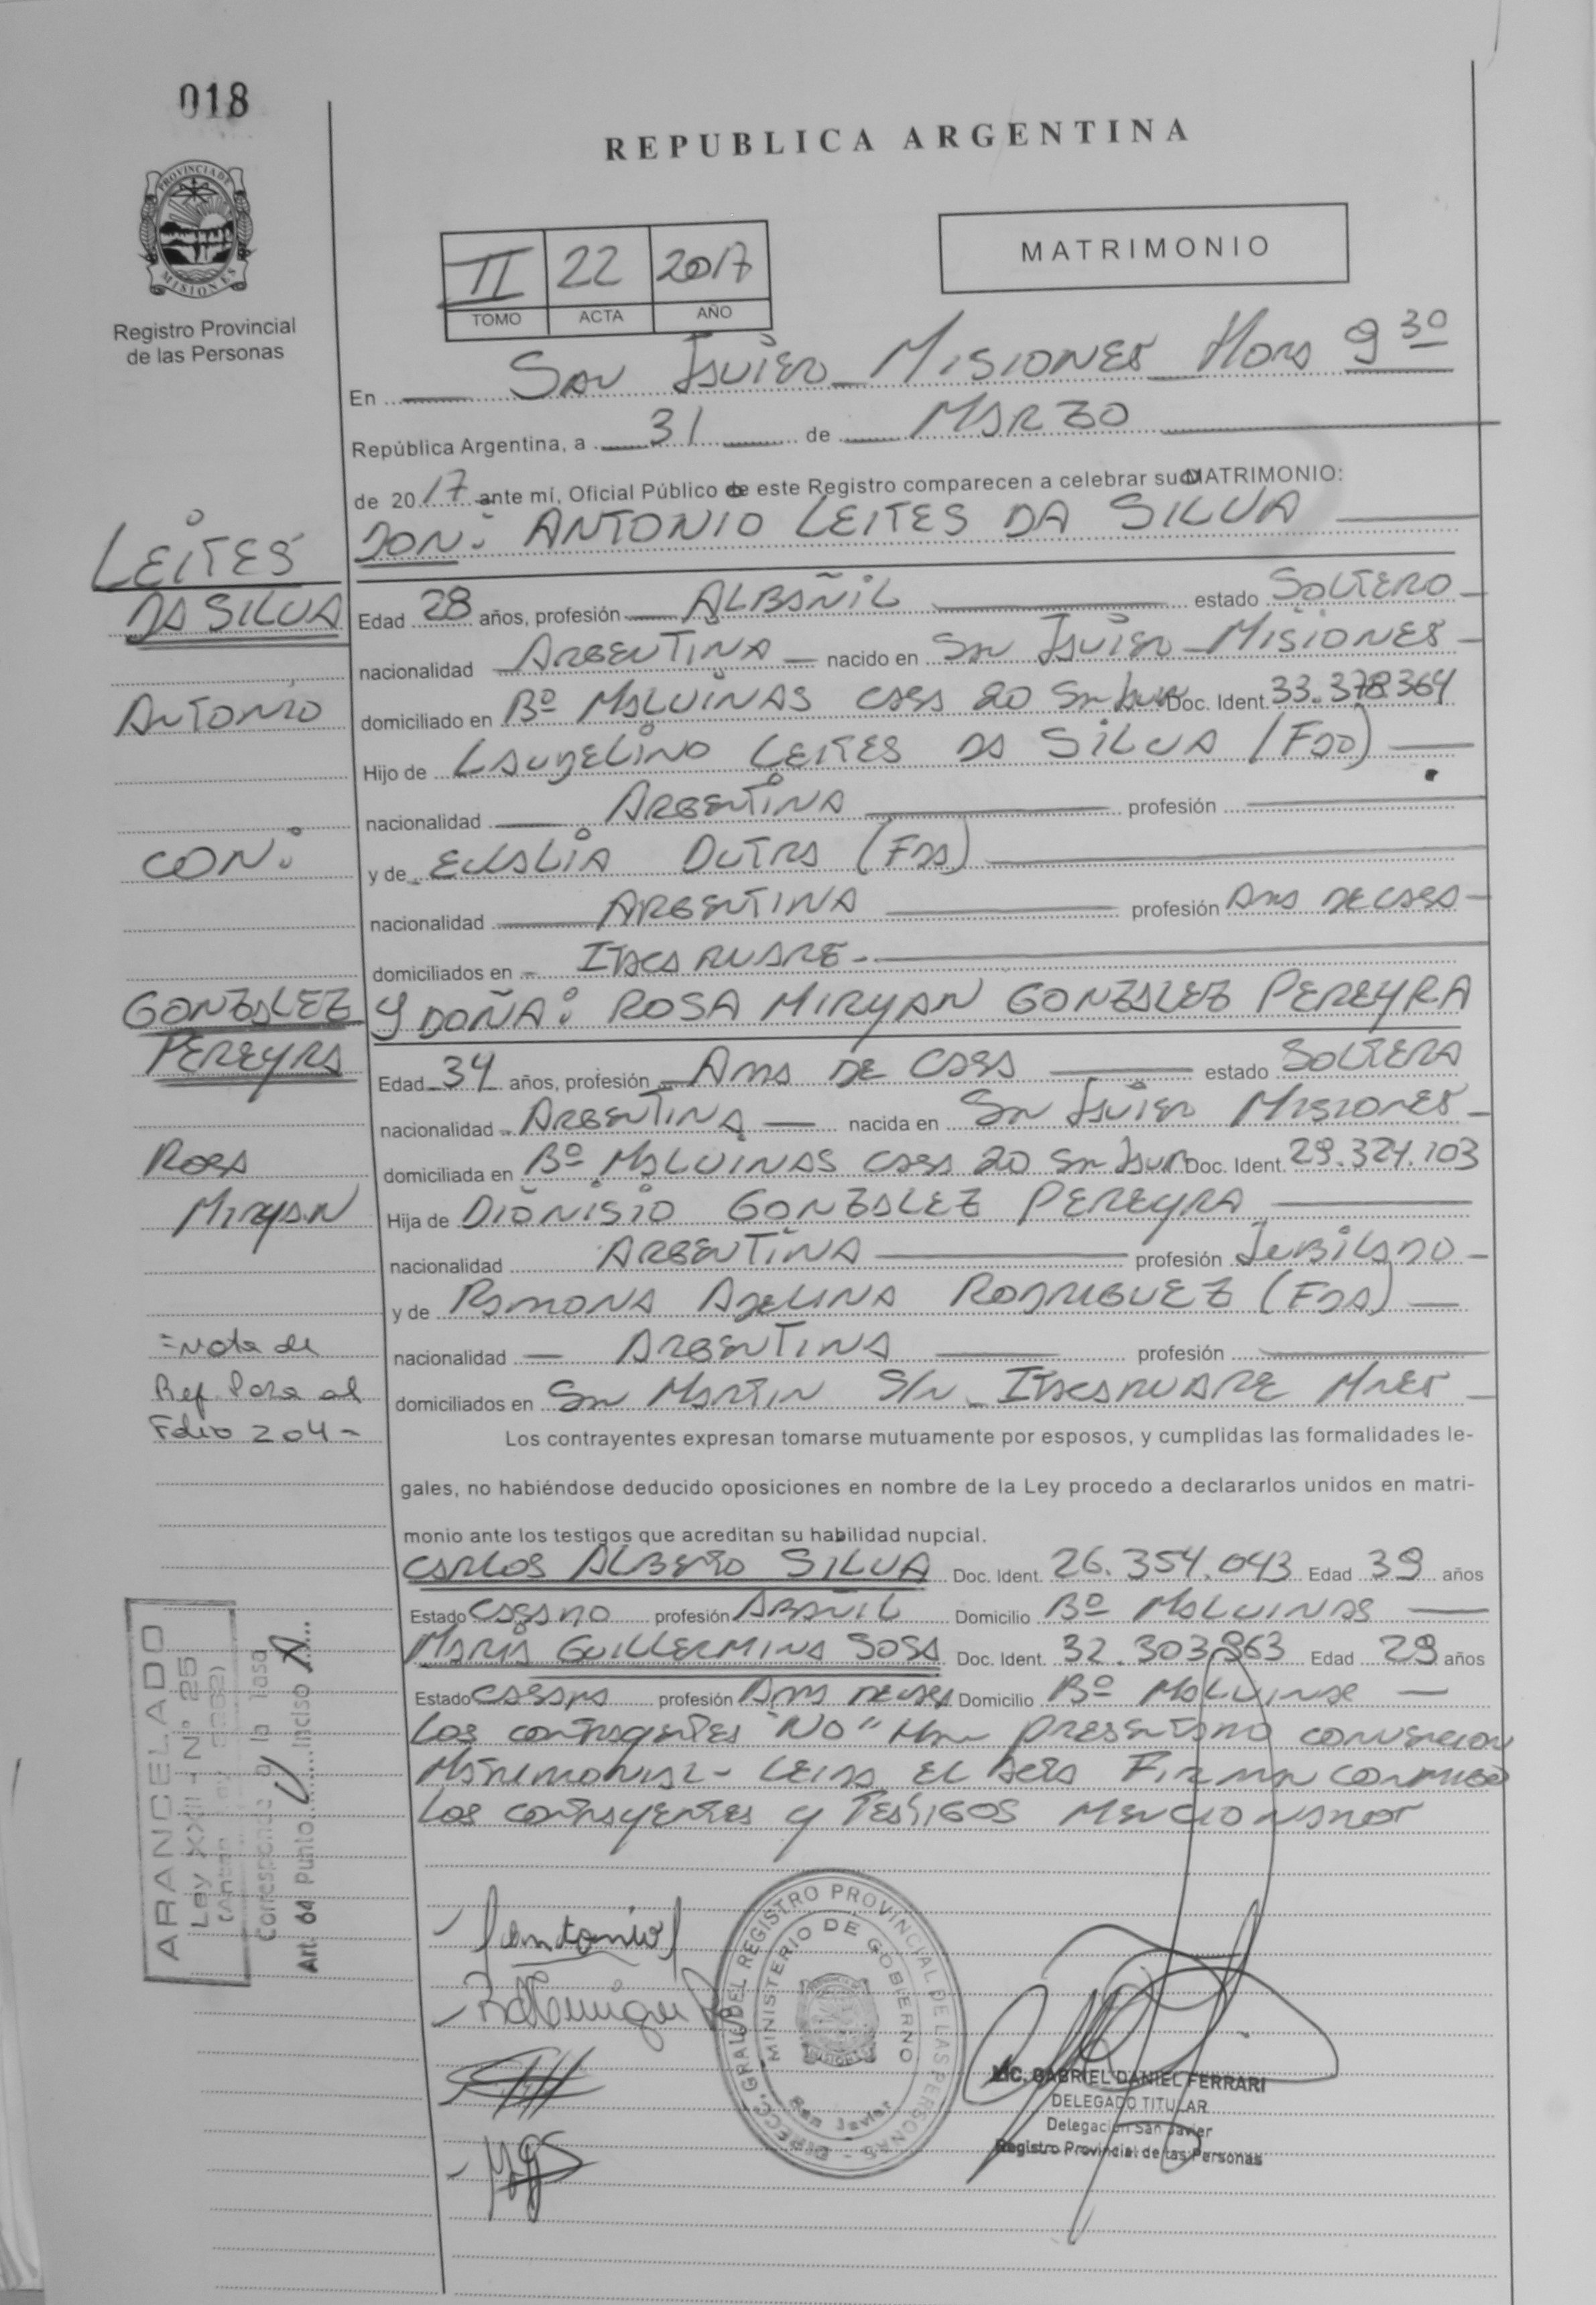 018
REPUBLICA ARGENTINA
PROVINCIA DE
MISIONES
Registro Provincial
de las Personas
II 22 2017
TOMO ACTA AÑO
MATRIMONIO
En San Javier Misiones Hora 9 30
República Argentina, a 31 de Marzo
de 2017 ante mí, Oficial Público de este Registro comparecen a celebrar su MATRIMONIO:
DON: ANTONIO LEITES DA SILVA
LEITES
DA SILVA
Edad 28 años, profesión ALBAÑIL estado SOLTERO
nacionalidad ARGENTINA nacido en San Javier Misiones
ANTONIO
domiciliado en Bº MALVINAS CASA 20 San Javier Doc. Ident. 33.378.364
Hijo de LAUDELINO LEITES DA SILVA (FDO)
nacionalidad ARGENTINA profesión
CON:
y de EULALIA DUTRA (FDA)
nacionalidad ARGENTINA profesión AMA DE CASA
domiciliados en ITACARUARE
GONZALEZ
PEREYRA
Y DOÑA: ROSA MIRYAN GONZALEZ PEREYRA
Edad 34 años, profesión AMA DE CASA estado SOLTERA
nacionalidad ARGENTINA nacida en San Javier Misiones
ROSA
MIRYAN
domiciliada en Bº MALVINAS CASA 20 San Javier Doc. Ident. 29.324.103
Hija de DIONISIO GONZALEZ PEREYRA
nacionalidad ARGENTINA profesión JUBILADO
y de RAMONA ADELINA RODRIGUEZ (FDA)
=Nota de
Ref Pasa al
Folio 204-
nacionalidad ARGENTINA profesión
domiciliados en San MARTIN S/N ITACARUARE Mnes
Los contrayentes expresan tomarse mutuamente por esposos, y cumplidas las formalidades le-
gales, no habiéndose deducido oposiciones en nombre de la Ley procedo a declararlos unidos en matri-
monio ante los testigos que acreditan su habilidad nupcial.
CARLOS ALBERTO SILVA Doc. Ident. 26.354.043 Edad 39 años
Estado CASADO profesión ABAÑIL Domicilio Bº MALVINAS
MARIA GUILLERMINA SOSA Doc. Ident. 32.303.963 Edad 29 años
Estado CASADA profesión AMA DE CASA Domicilio Bº MALVINAS
Los contrayentes "NO" Han PRESENTADO CONVENCION
MATRIMONIAL- LEIDA EL ACTA FIRMAN CONMIGO
Los contrayentes y TESTIGOS MENCIONADOS
ARANCELADO
Ley XXII - N° 25
Corresponde a la Tasa
Art. 64 Punto Inciso A
Antonio
DIRECC. GRAL. DEL REGISTRO PROVINCIAL DE LAS PERSONAS
MINISTERIO DE GOBIERNO
San Javier
LIC. GABRIEL DANIEL FERRARI
DELEGADO TITULAR
Delegación San Javier
Registro Provincial de las Personas